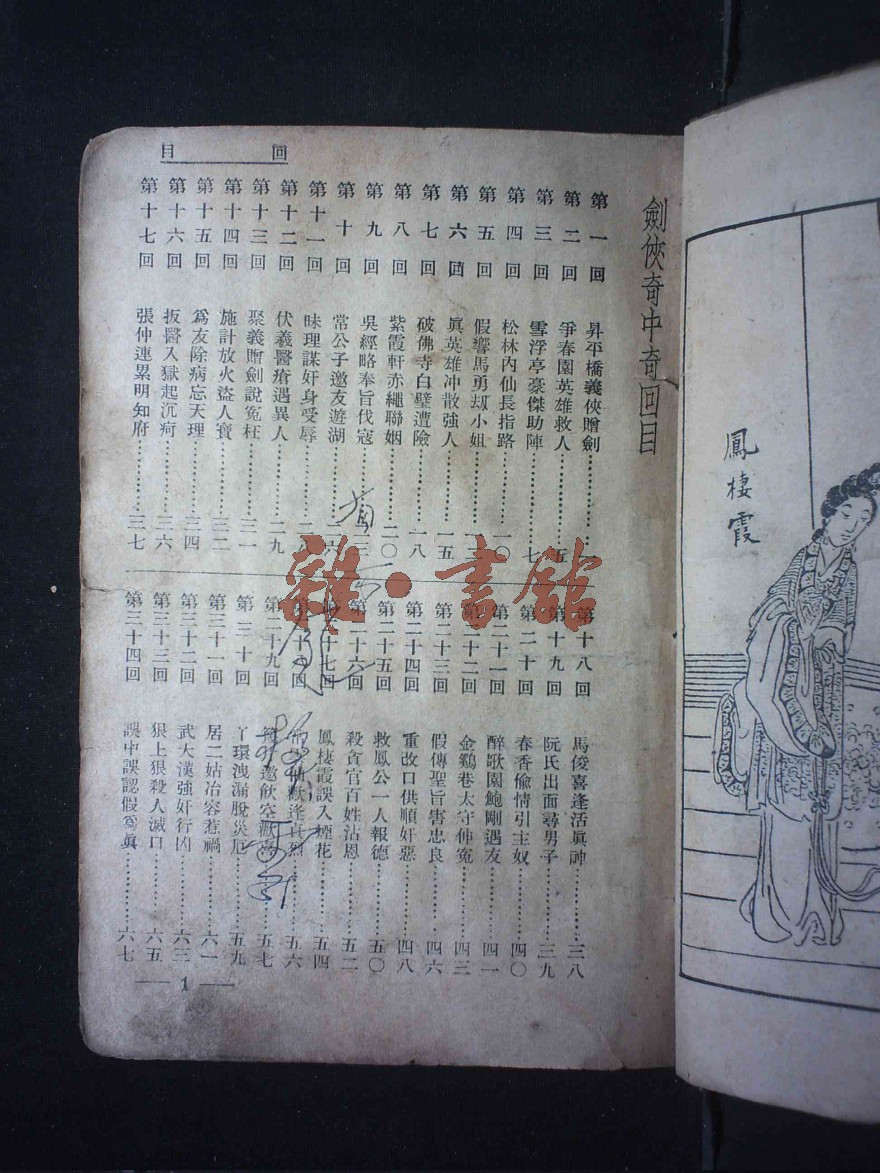 鳳棲霞
劍俠奇中奇回目
回目
第一回 昇平橋義俠贈劍…………一
第二回 爭春園英雄救人…………五
第三回 雪浮亭豪傑助陣…………七
第四回 松林內仙長指路…………一〇
第五回 假響馬勇刼小姐…………一三
第六回 眞英雄冲散強人…………一五
第七回 破佛寺白璧遭險…………一八
第八回 紫霞軒赤繩聯姻…………二〇
第九回 吳經略奉旨伐寇…………二三
第十回 常公子邀友遊湖…………二六
第十一回 昧理謀奸身受辱…………二八
第十二回 伏羲醫瘡遇異人…………二九
第十三回 聚義贈劍說冤枉…………三一
第十四回 施計放火盜人寶…………三二
第十五回 爲友除病忘天理…………三四
第十六回 扳醫入獄起沉疴…………三六
第十七回 張仲連累明知府…………三七
第十八回 馬俊喜逢活眞神…………三八
第十九回 阮氏出面尋男子…………三九
第二十回 春香偷情引主奴…………四〇
第二十一回 醉歌園鮑剛遇友…………四一
第二十二回 金鷄巷太守伸冤…………四三
第二十三回 假傳聖旨害忠良…………四六
第二十四回 重改口供順奸惡…………四八
第二十五回 救鳳公一人報德…………五〇
第二十六回 殺貪官百姓沾恩…………五二
第二十七回 鳳棲霞誤入煙花…………五四
第二十八回 逢貞烈…………五六
第二十九回 邀飲空…………五七
第三十回 丫環洩漏脫災厄…………五九
第三十一回 居二姑冶容惹禍…………六一
第三十二回 武大漢強奸行凶…………六三
第三十三回 狠上狠殺人滅口…………六五
第三十四回 誤中誤認假爲眞…………六七
— 1 —
雜·書館